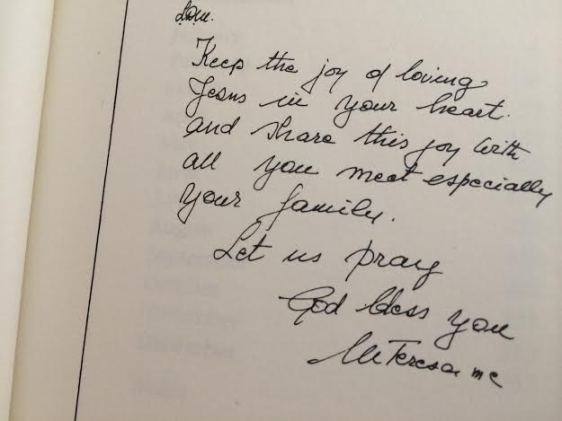 LDM.
Keep the joy of loving
Jesus in your heart.
and share this joy with
all you meet especially
your family.
Let us pray
God bless you
M Teresa mc